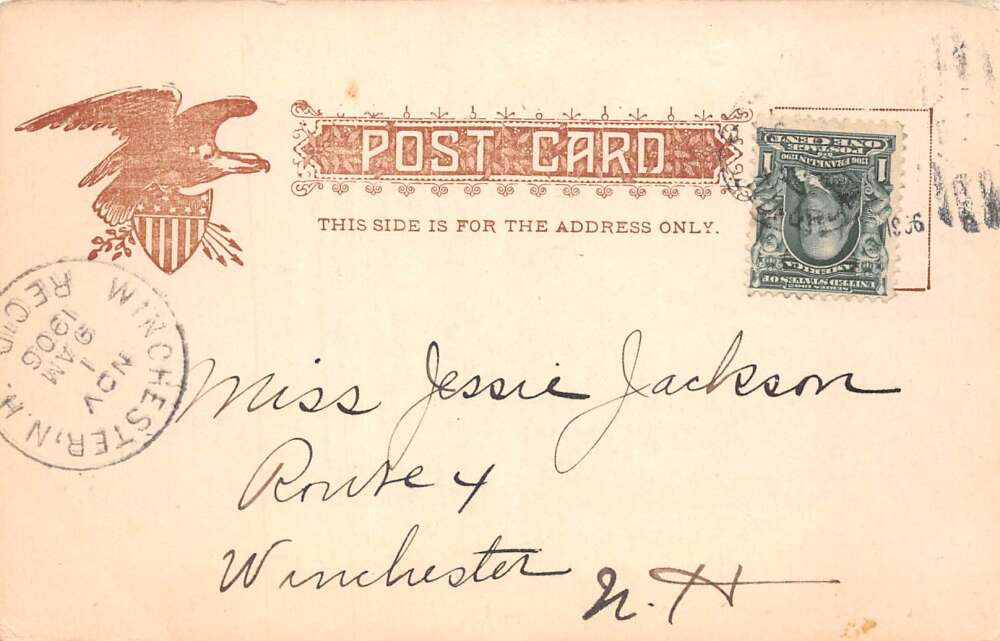 POST CARD
THIS SIDE IS FOR THE ADDRESS ONLY.
SERIES 1902
UNITED STATES OF
AMERICA
1706 FRANKLIN 1790
1 1
POSTAGE
ONE CENT
1906
WINCHESTER, N.H.
NOV
1
9 AM
1906
REC'D
Miss Jessie Jackson
Route 4
Winchester N.H